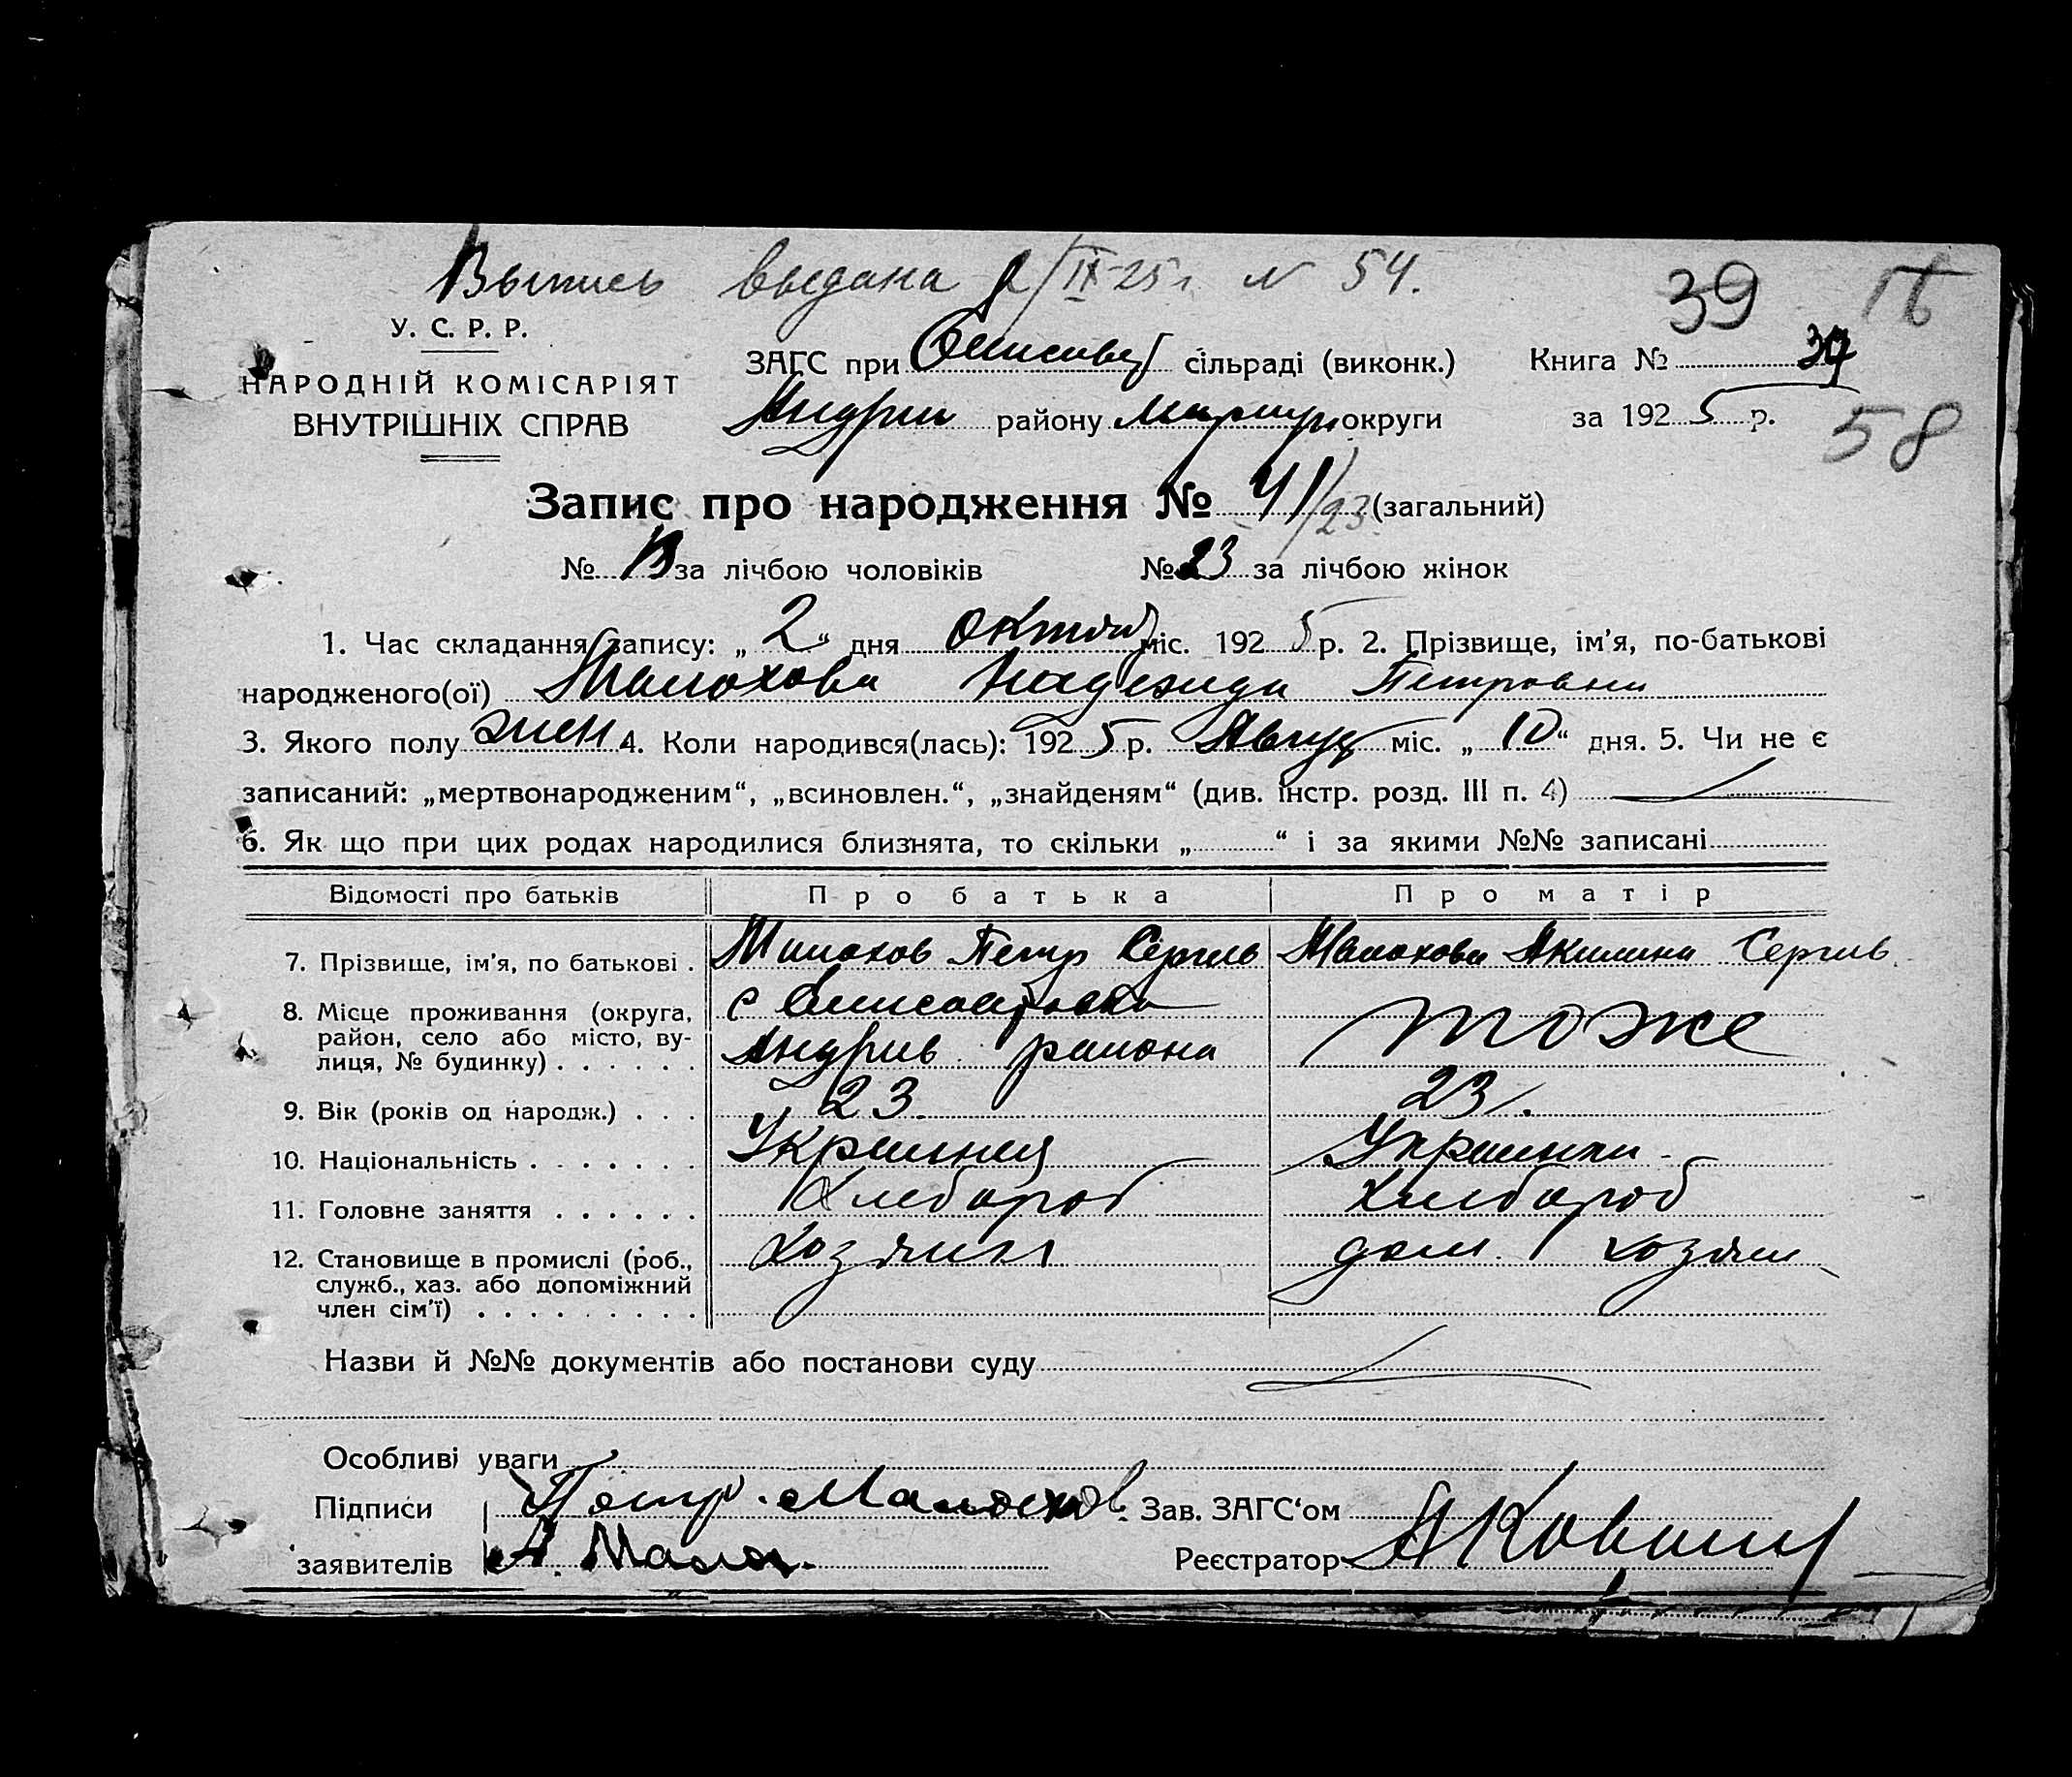 Выпись выдана 2/IX-25 г. N 54.
39
У. С. Р. Р.
НАРОДНІЙ КОМІСАРІЯТ
ВНУТРІШНІХ СПРАВ
ЗАГС при сільраді (виконк.)
Книга № 39
Андрии району Мариуп округи
за 1925 р.
58
Запис про народження № 41/23 (загальний)
№ за лічбою чоловіків № 23 за лічбою жінок
1. Час складання запису: „ 2 “ дня октяб міс. 1925 р. 2. Прізвище, ім’я, по-батькові
народженого(ої) Малюхова Надежда Петровна
3. Якого полу жен 4. Коли народився(лась): 1925 р. Август міс. „ 10 “ дня. 5. Чи не є
записаний: „мертвонародженим“, „всиновлен.“, „знайденям“ (див. інстр. розд. III п. 4)
6. Як що при цих родах народилися близнята, то скільки „ “ і за якими №№ записані
Відомості про батьків Про батька Про матір
7. Прізвище, ім’я, по батькові . Малюхов Петр Сергеев Малюхова Акилина Сергеев
8. Місце проживання (округа,
район, село або місто, ву-
лиця, № будинку) . . . . . .
с
Андреев района
тоже
9. Вік (років од народж.) . . . 23. 23.
10. Національність . . . . . . . Украинец Украинка
11. Головне заняття . . . . . . Хлебороб Хлебороб
12. Становище в промислі (роб.,
служб., хаз. або допоміжний
член сім’ї) . . . . . . . . .
хозяин
дом. хозяин
Назви й №№ документів або постанови суду
Особливі уваги
Підписи
заявителів
Петр. Малюхов
А. Малюх.
Зав. ЗАГС‘ом
Реєстратор